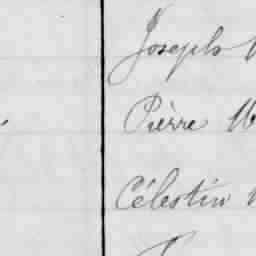 Joseph
Pierre
Célestin